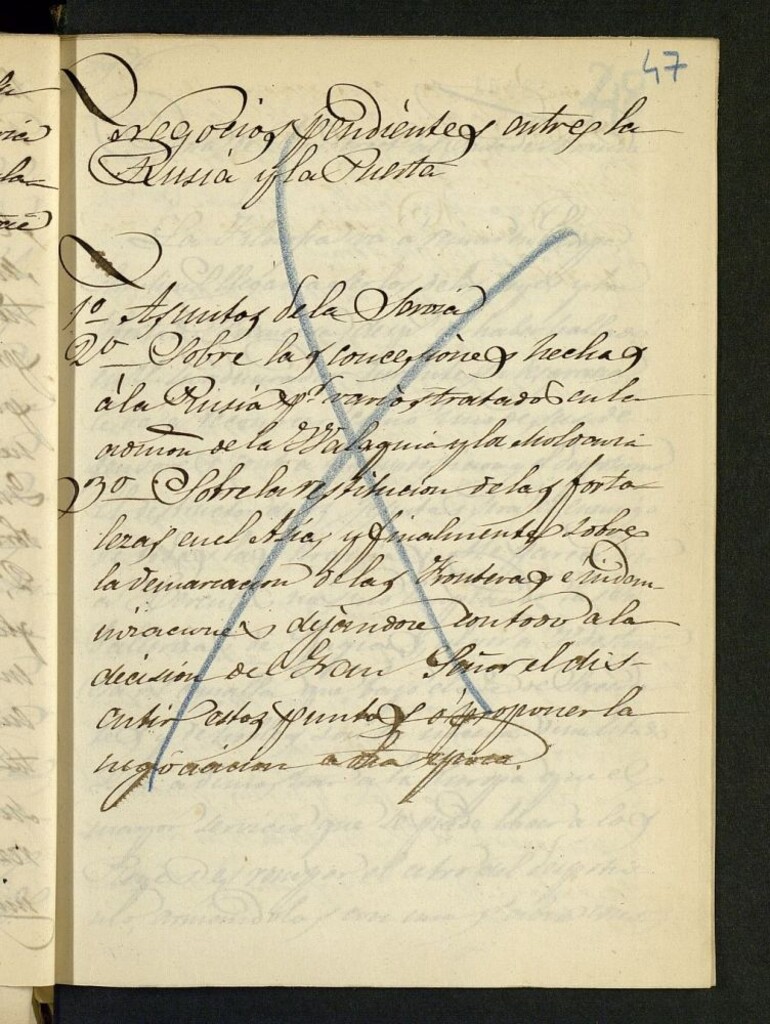 47
Negocios pendientes entre la
Rusia y la Puerta
1º Asuntos de la Servia
2º Sobre las concesiones hechas
á la Rusia pr varios tratados en la
admon de la Valaquia y la Moldavia
3º Sobre la restitucion de las forta
lezas en el Asia, y finalmente sobre
la demarcacion de las fronteras é indem
nizaciones dejandose con todo a la
decision del Gran Señor el dis-
cutir estos puntos ó proponer la
negociacion a otra epoca.